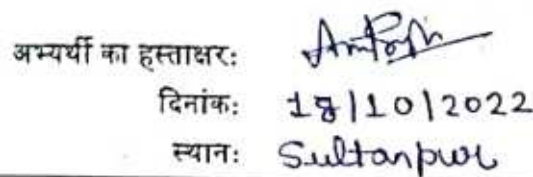 अभ्यर्थी का हस्ताक्षर:
दिनांक: 18|10|2022
स्थान: Sultanpur